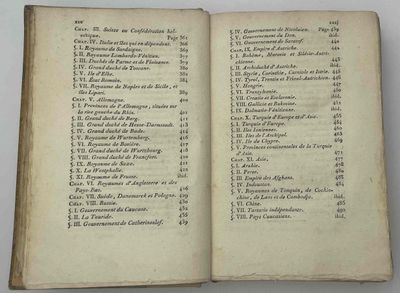 xiv
CHAP. III. Suisse ou Confédération helvétique.
Page 361
CHAP. IV. Italie et îles qui en dépendent.
§. I. Royaume de Sardaigne.
§. II. Royaume Lombardo-Vénitien.
§. III. Duchés de Parme et de Plaisance.
§. IV. Grand duché de Toscane.
§. V. Ile d'Elbe.
§. VI. État Romain.
§. VII. Royaume de Naples et de Sicile, et îles Lipari.
CHAP. V. Allemagne.
§. I. Provinces de l'Allemagne, situées sur la rive gauche du Rhin.
§. II. Grand duché de Berg.
§. III. Grand duché de Hesse-Darmstadt.
§. IV. Grand duché de Bade.
§. V. Royaume de Wurtemberg.
§. VI. Royaume de Bavière.
§. VII. Grand duché de Wurtzbourg.
§. VIII. Grand duché de Francfort.
§. IX. Royaume de Saxe.
§. X. La Westphalie.
§. XI. Royaume de Prusse. ibid.
CHAP. VI. Royaumes d'Angleterre et des Pays-Bas.
CHAP. VII. Suède, Danemarck et Pologne.
CHAP. VIII. Russie.
§. I. Gouvernement du Caucase.
§. II. La Tauride.
§. III. Gouvernement de Catherinoslaf.
§. IV. Gouvernement de Nicolaïew. Page 439
§. V. Gouvernement du Don. ibid.
§. VI. Gouvernement de Saratof.
CHAP. IX. Empire d'Autriche.
§. I. Bohème, Moravie et Silésie Autrichienne. ibid.
§. II. Archiduché d'Autriche.
§. III. Styrie, Carinthie, Carniole et Istrie.
§. IV. Tyrol, Trentin et Frioul-Autrichien. ibid.
§. V. Hongrie.
§. VI. Transylvanie.
§. VII. Croatie et Esclavonie. ibid.
§. VIII. Gallicie et Bukovine.
§. IX. Dalmatie-Vénitienne. ibid.
CHAP. X. Turquie d'Europe et d'Asie.
§. I. Turquie d'Europe.
§. II. Iles Ioniennes.
§. III. Iles de l'Archipel.
§. IV. Ile de Chypre.
§. V. Provinces continentales de la Turquie d'Asie.
CHAP. XI. Asie.
§. I. Arabie.
§. II. Perse.
§. III. Empire des Afghans.
§. IV. Indoustan.
§. V. Royaumes de Tonquin, de Cochinchine, de Laos et de Cambodje. ibid.
§. VI. Chine.
§. VII. Tartarie indépendante.
§. VIII. Pays Caucasiens. ibid.